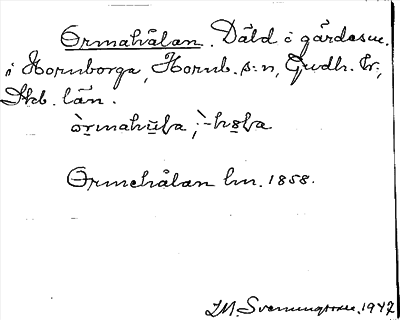 Ormahålan. Däld i gärdesue.
i Hornborga, Hornb. s:n, Gudh. hr,
Skb. län.
òrmahu̱la, ̀-ho̱la
Ormehålan lm. 1858.
I.M. Svenningsson. 1947